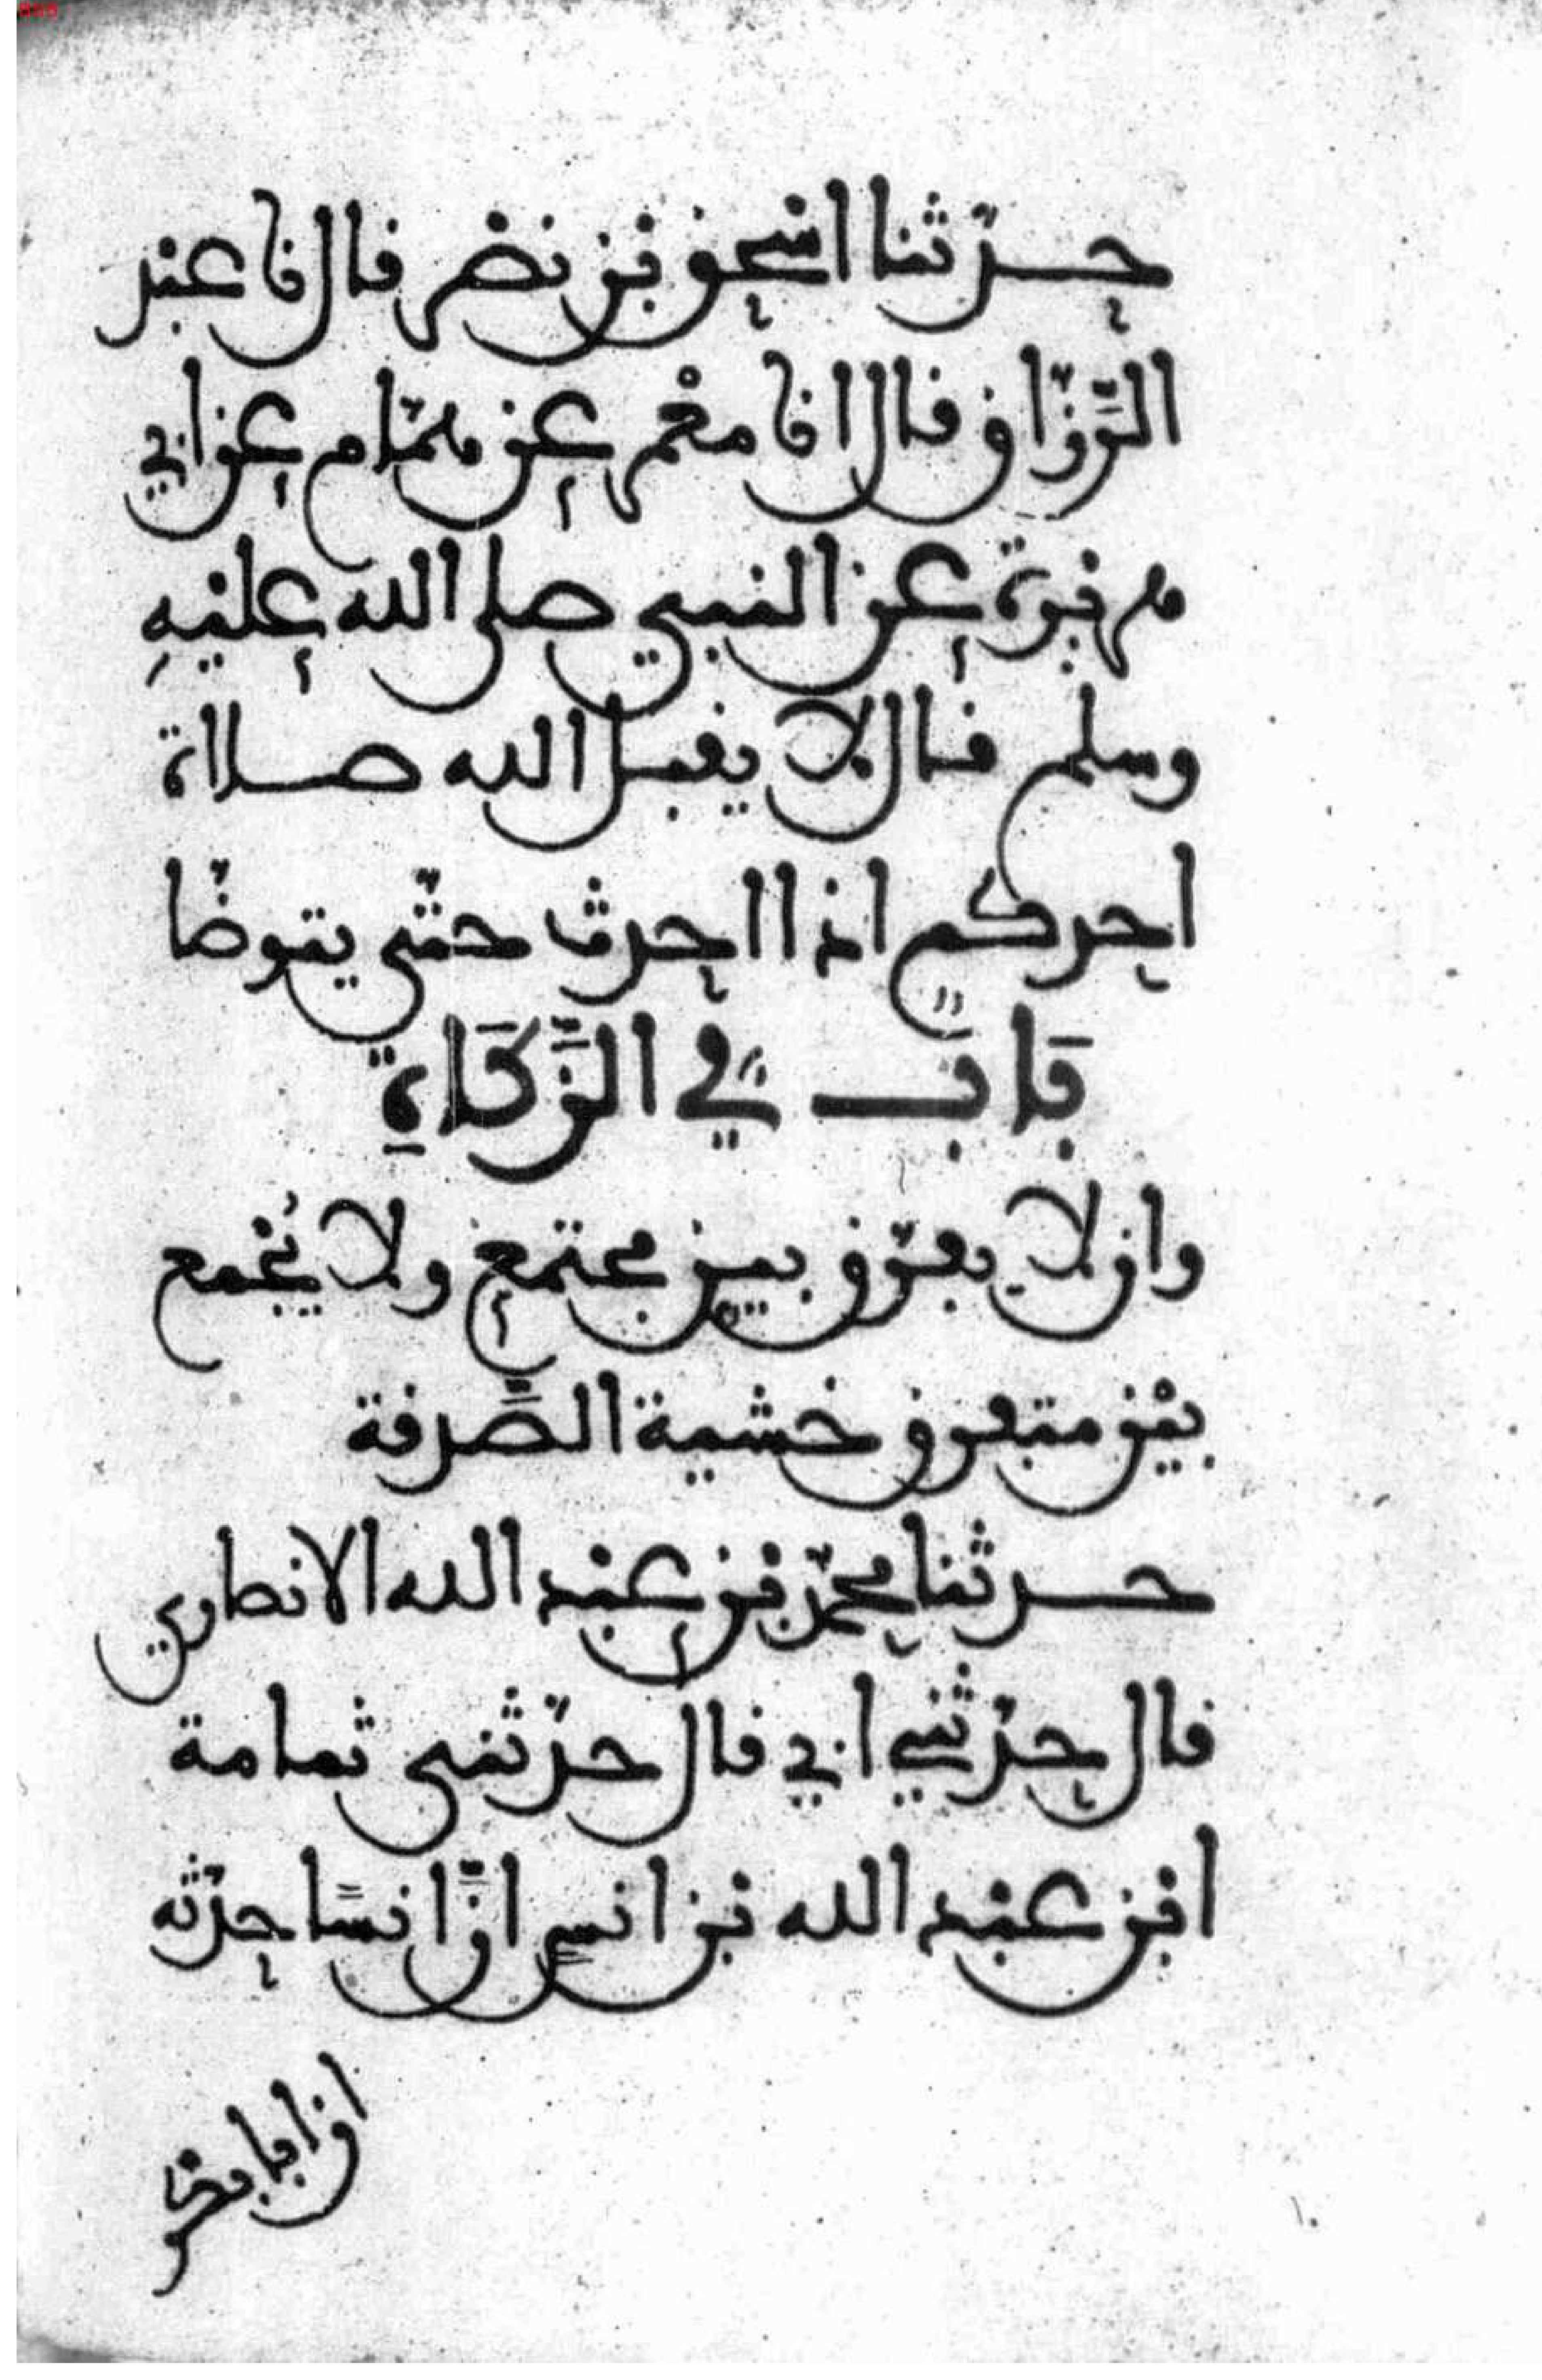 حدثنا اسحق بن نصر قال نا عبد
الرزاق قال انا معمر عن همام عن ابي
هريرة عن النبي صلى الله عليه
وسلم قال لا يقبل الله صلاة
احدكم اذا احدث حتى يتوضا
بَابٌ في الزَّكَاةِ
وان لا يفرّق بين مجتمع ولا يُجْمع
بيْن متفرق خشية الصَّدقة
حدثنا محمّد بن عبْد الله الانصاري
قال حدّثني ابي قال حدّثني ثمامة
ابن عبْد الله بن انسٍ انَّ انسًا حدّثه
ان ابا بكر